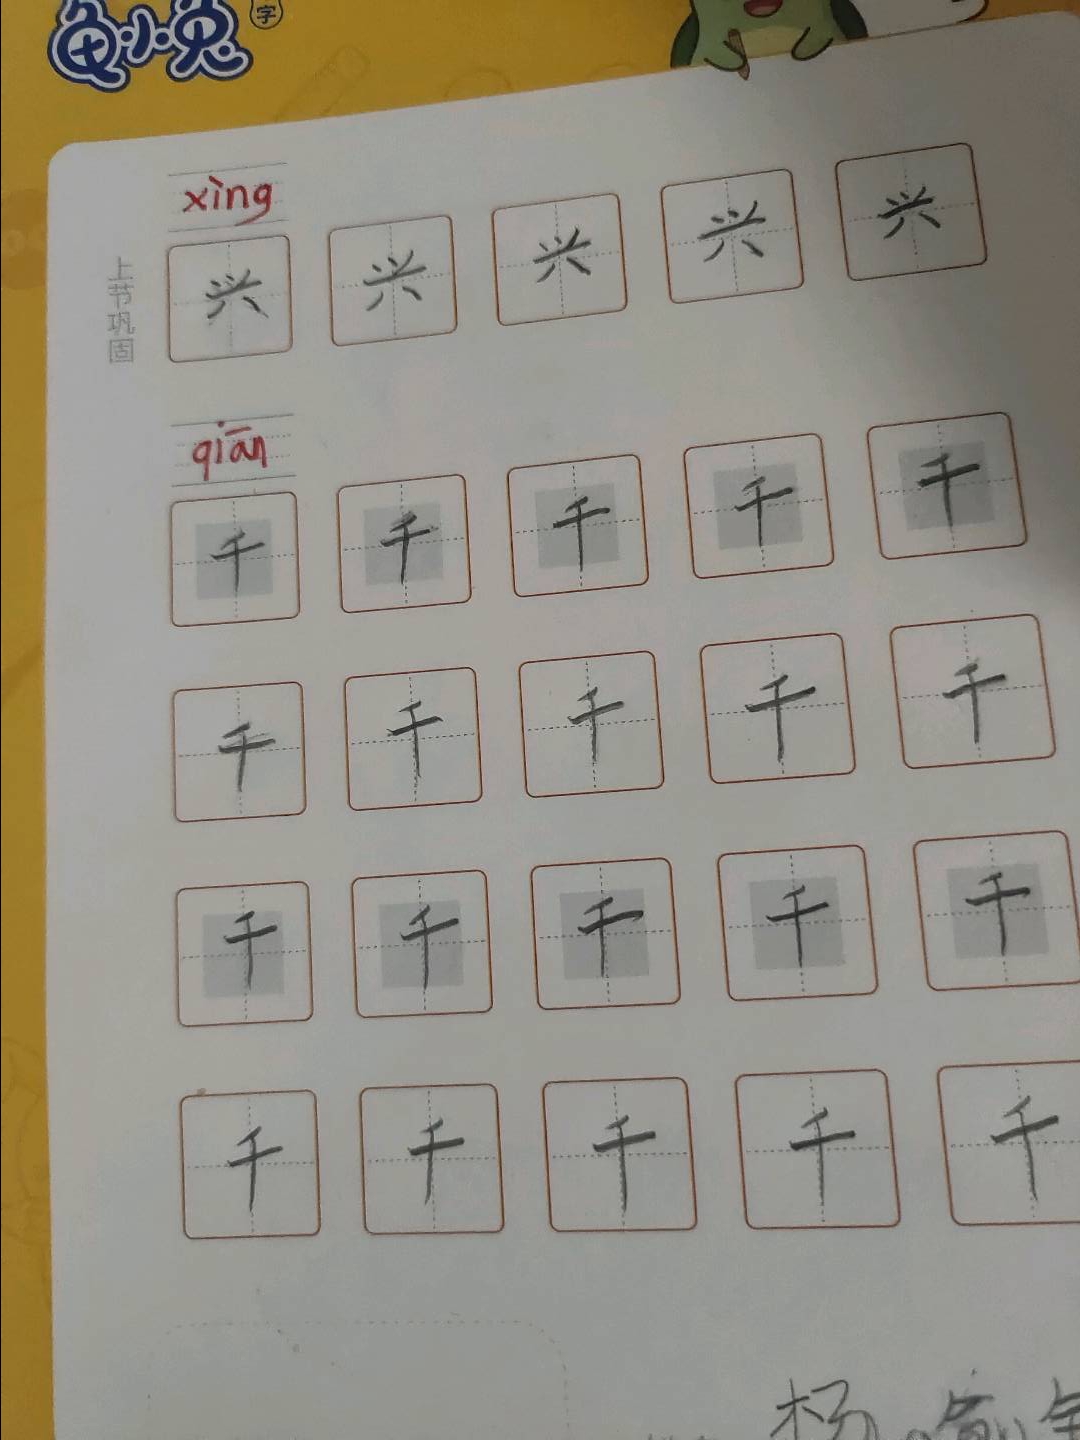 龟小兔
字
xìng
上节巩固
兴 兴 兴 兴 兴
qiān
千 千 千 千 千
千 千 千 千 千
千 千 千 千 千
千 千 千 千 千
杨